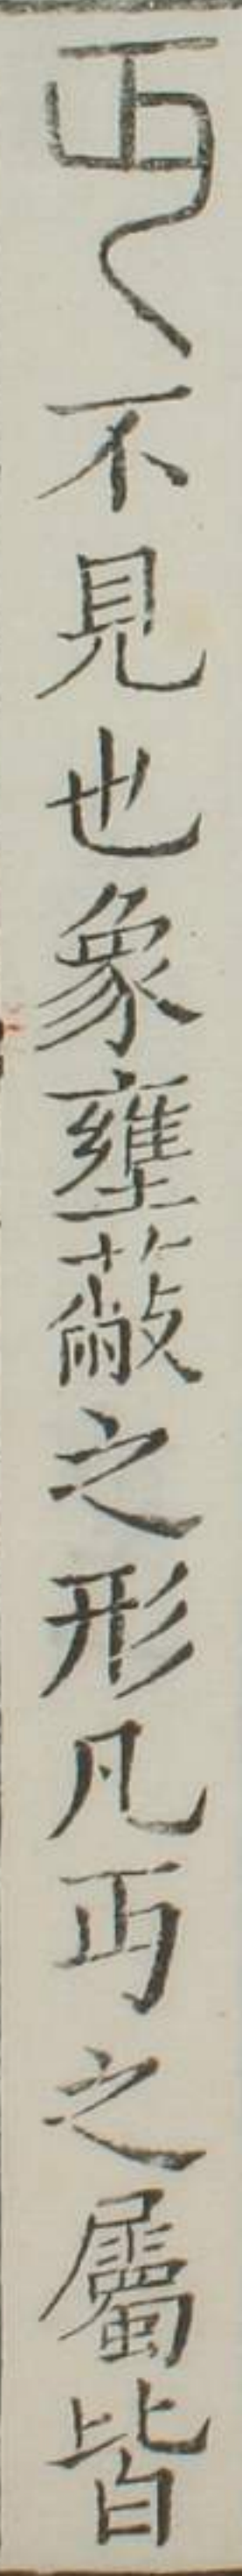 丏不見也象壅蔽之形凡丏之屬皆